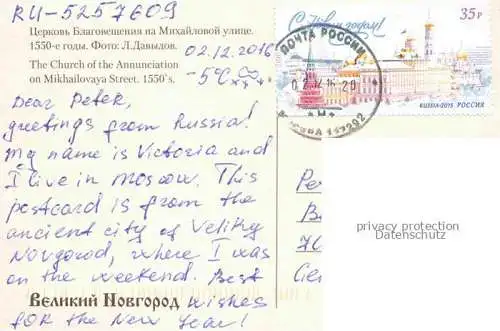 RU-5257609
Церковь Благовещения на Михайловой улице.
1550-е годы. Фото: Л.Давыдов.
The Church of the Annunciation
on Mikhailovaya Street. 1550's.
02.12.2016
-5°C
Dear Peter,
greetings from Russia!
My name is Victoria and
I live in Moscow. This
postcard is from the
ancient city of Veliky
Novgorod, where I was
on the weekend. Best
wishes
for the New Year!
Великий Новгород
35₽
ПОЧТА РОССИИ
RUSSIA·2015 РОССИЯ
privacy protection
Datenschutz